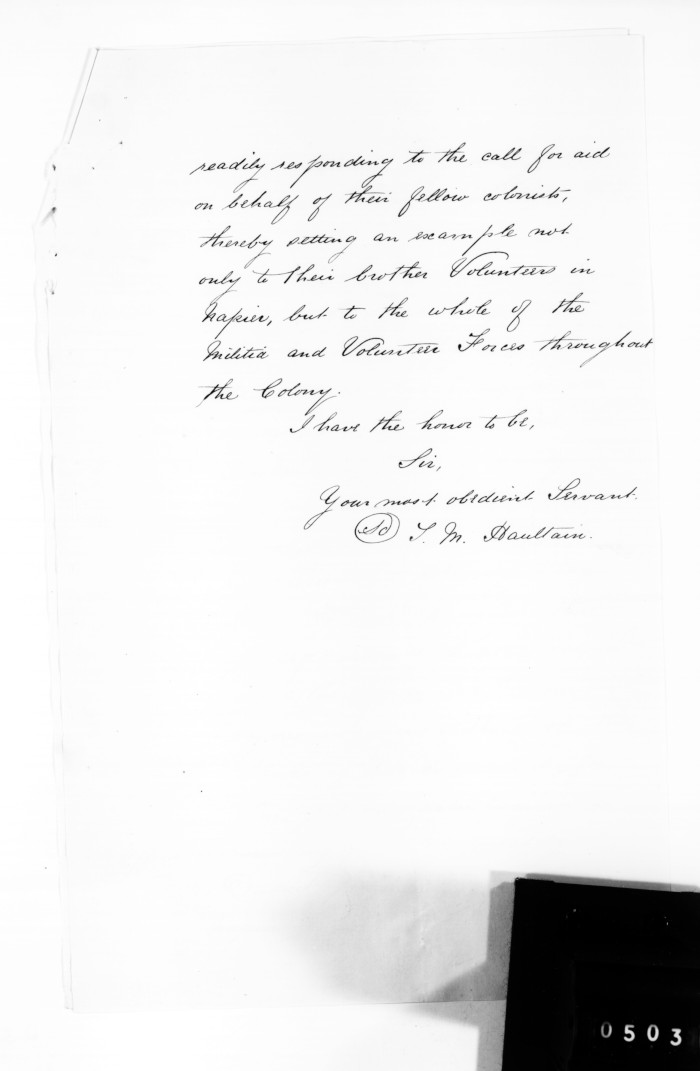 readily responding to the call for aid
on behalf of their fellow colonists,
thereby setting an example not
only to their brother Volunteers in
Napier, but to the whole of the
Militia and Volunteer Forces throughout
the Colony.
I have the honor to be,
Sir,
Your most obedient Servant.
Sd T. M. Haultain.
0503